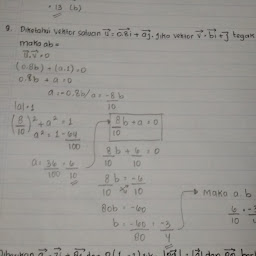 = 13 (b)
9. Diketahui vektor satuan u = 0.8i + aj, jika vektor v = bi + j tegak
maka ab =
u.v = 0
(0.8b) + (a.1) = 0
0.8b + a = 0
a = -0.8b / a = -8b/10
|a| = 1
(8/10)² + a² = 1
a² = 1 - 64/100
a = 36/100 = 6/10
8/10 b + a = 0
8/10 b + 6/10 = 0
8/10 b = -6/10
80b = -60
b = -60/80 = -3/4
→ maka a.b
6/10 . -3